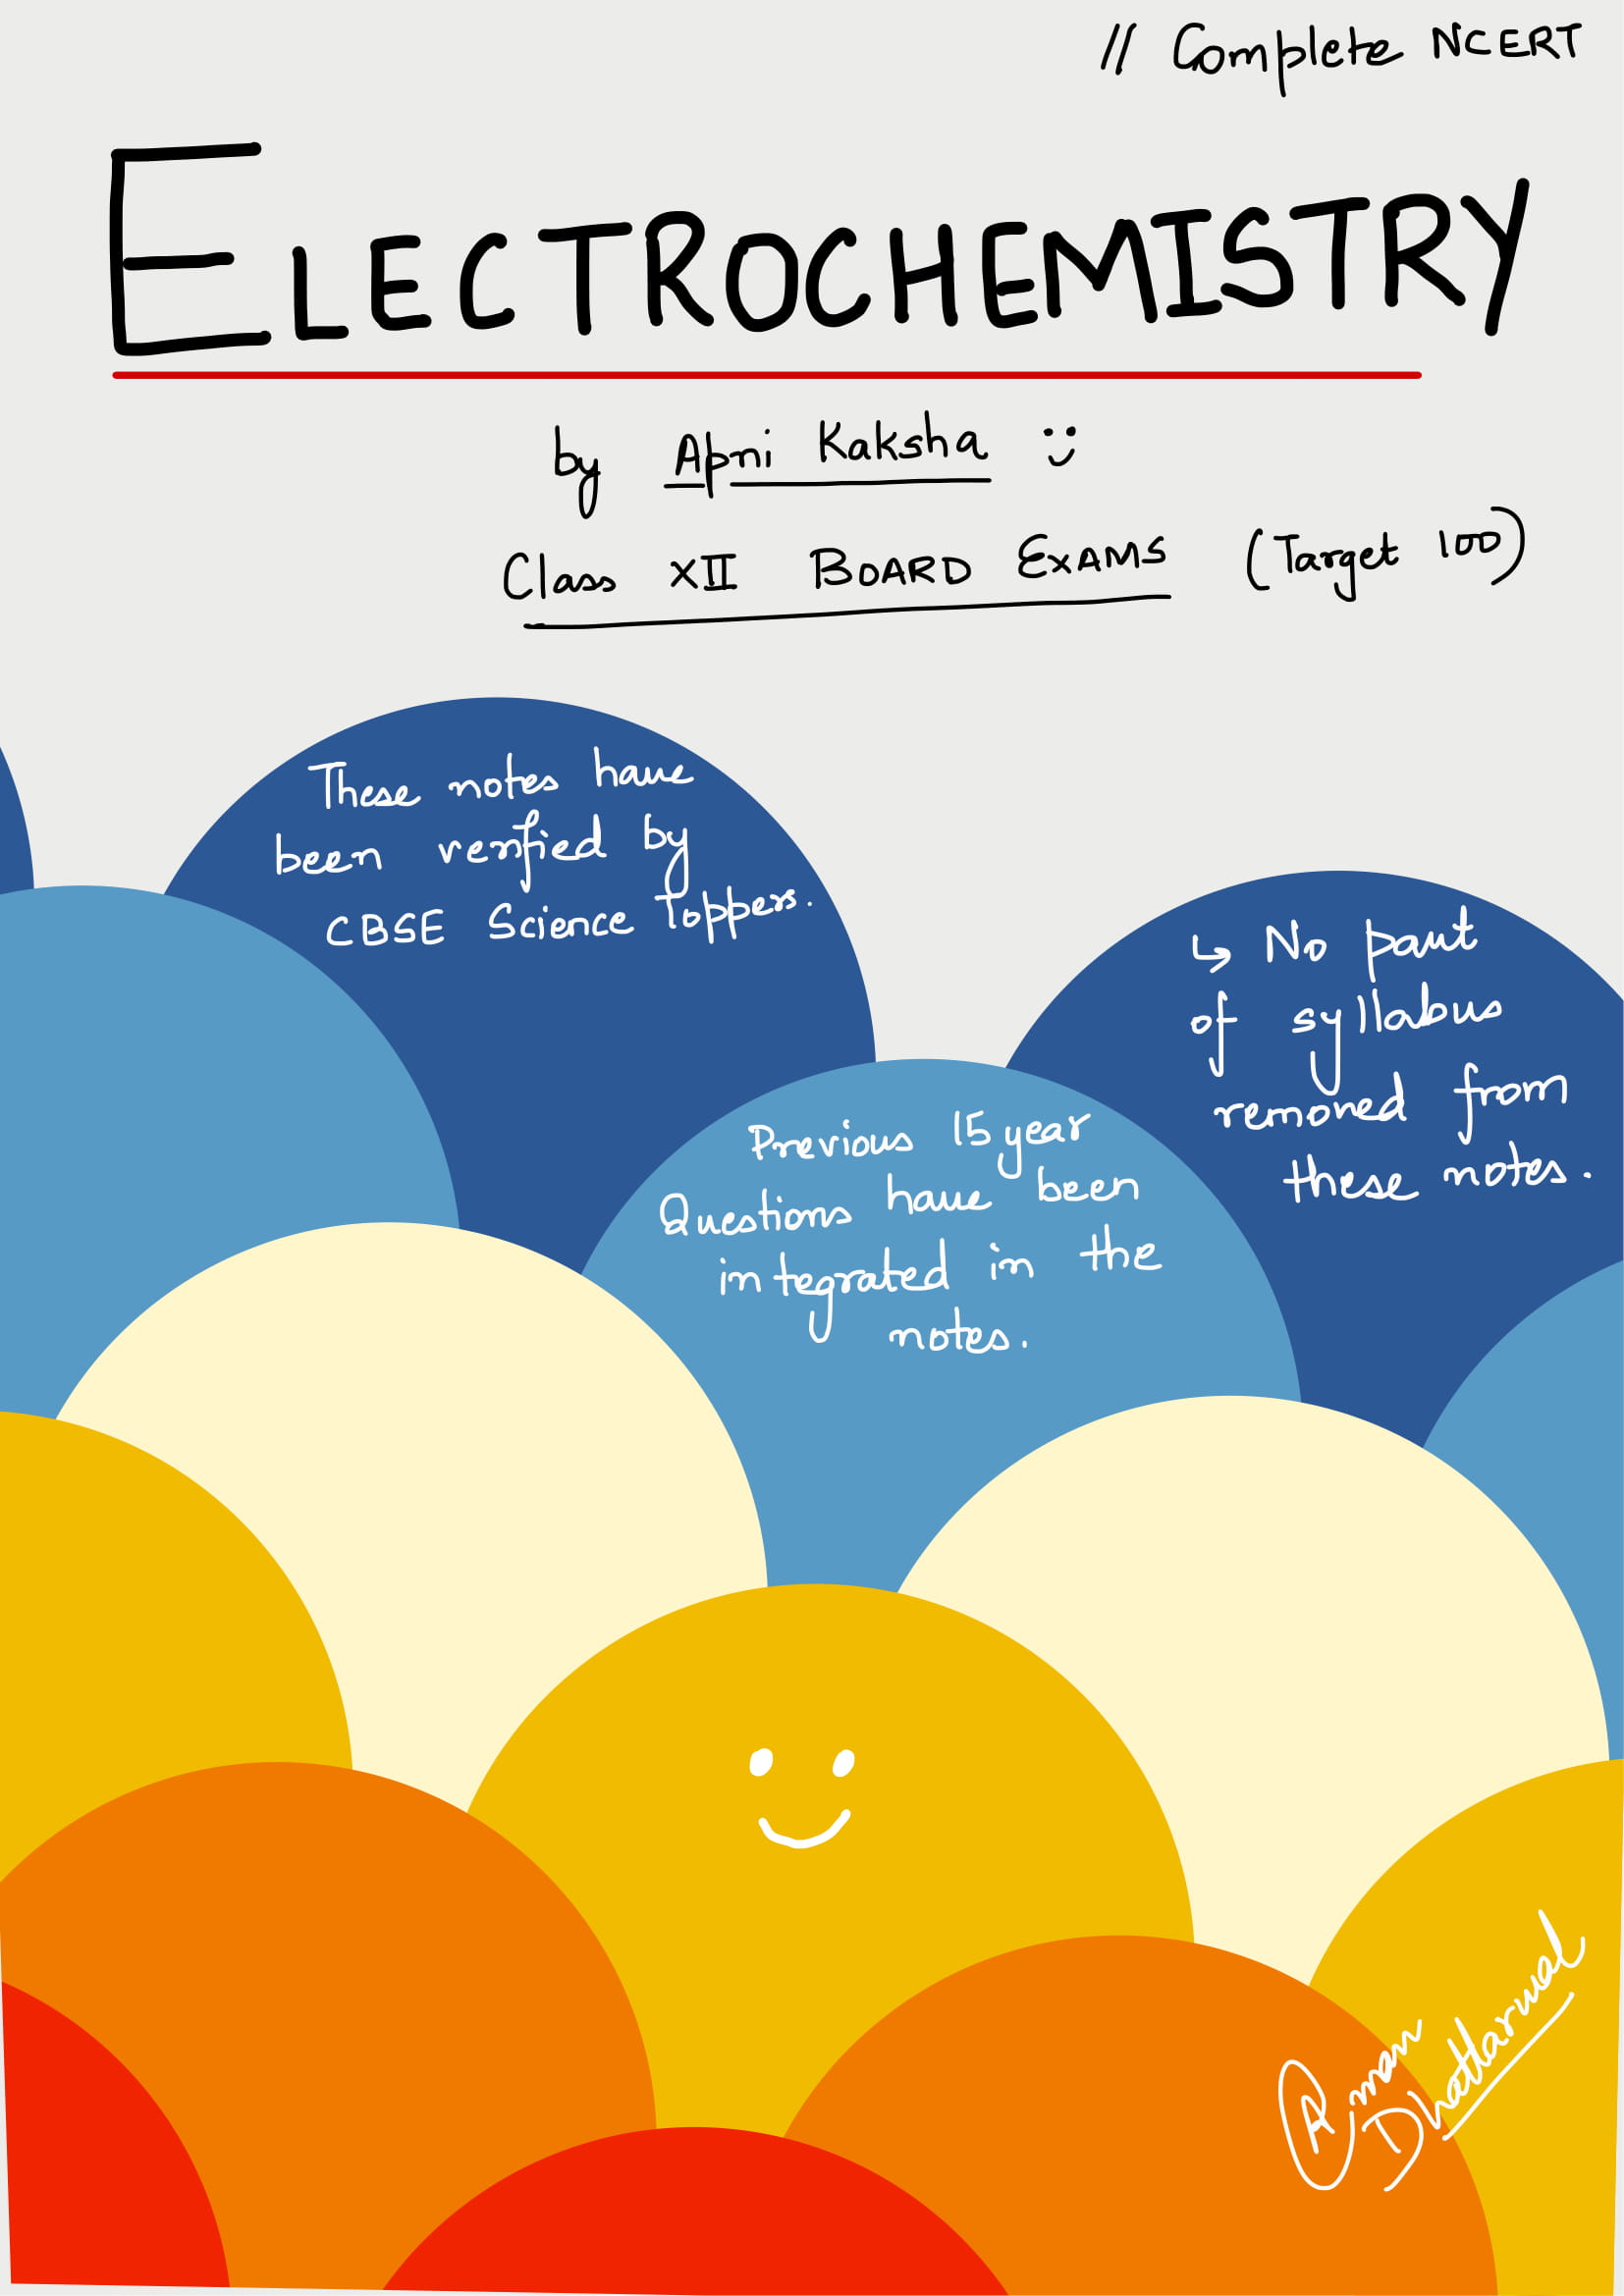 // Complete NCERT
ELECTROCHEMISTRY
by Apni Kaksha :)
Class XII BOARD EXAMS (Target 100)
These notes have
been verified by
CBSE Science Toppers.
↳ No part
of syllabus
removed from
these notes.
Previous 15 year
Questions have been
integrated in the
notes.
Aman
Dhattarwal